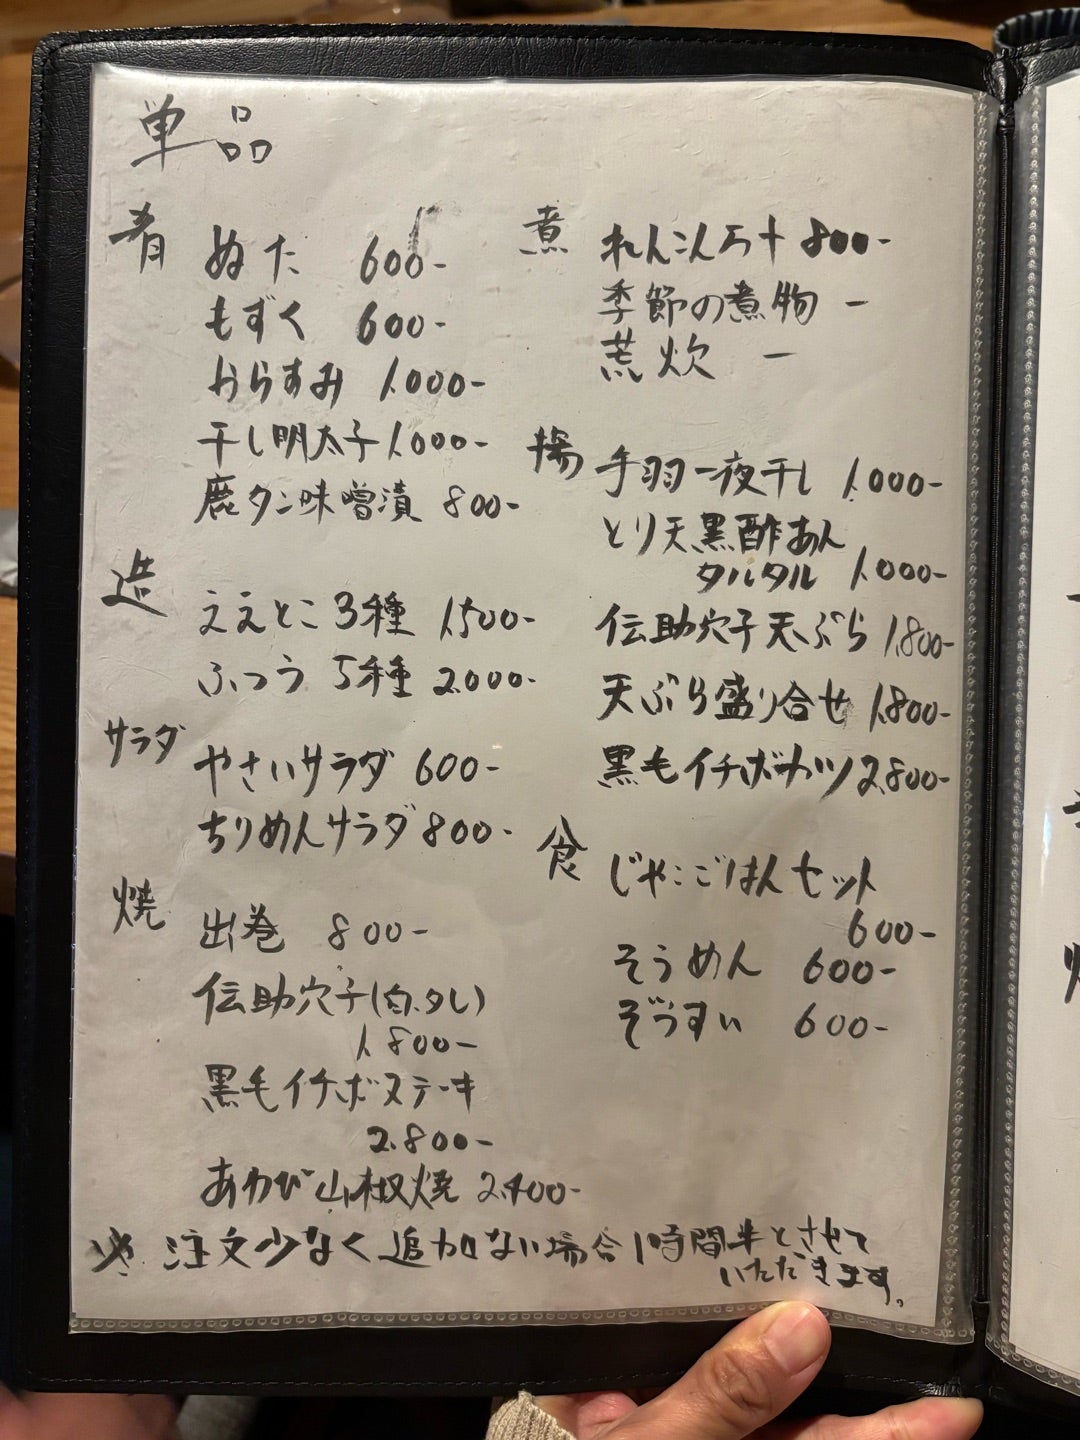 単品
肴
ぬた 600-
もずく 600-
からすみ 1.000-
干し明太子 1.000-
鹿タン味噌漬 800-
造
ええとこ3種 1.500-
ふつう 5種 2.000-
サラダ
やさいサラダ 600-
ちりめんサラダ 800-
焼
出巻 800-
伝助穴子(白.タレ)
1.800-
黒毛イチボステーキ
2.800-
あわび山椒焼 2.400-
煮
れんこん万十 800-
季節の煮物 ー
荒炊 ー
揚
手羽一夜干し 1.000-
とり天黒酢あん
タルタル 1.000-
伝助穴子天ぷら 1.800-
天ぷら盛り合せ 1.800-
黒毛イチボカツ 2.800-
食
じゃこごはんセット
600-
そうめん 600-
ぞうすい 600-
※ 注文少なく追加ない場合1時間半とさせて
いただきます。